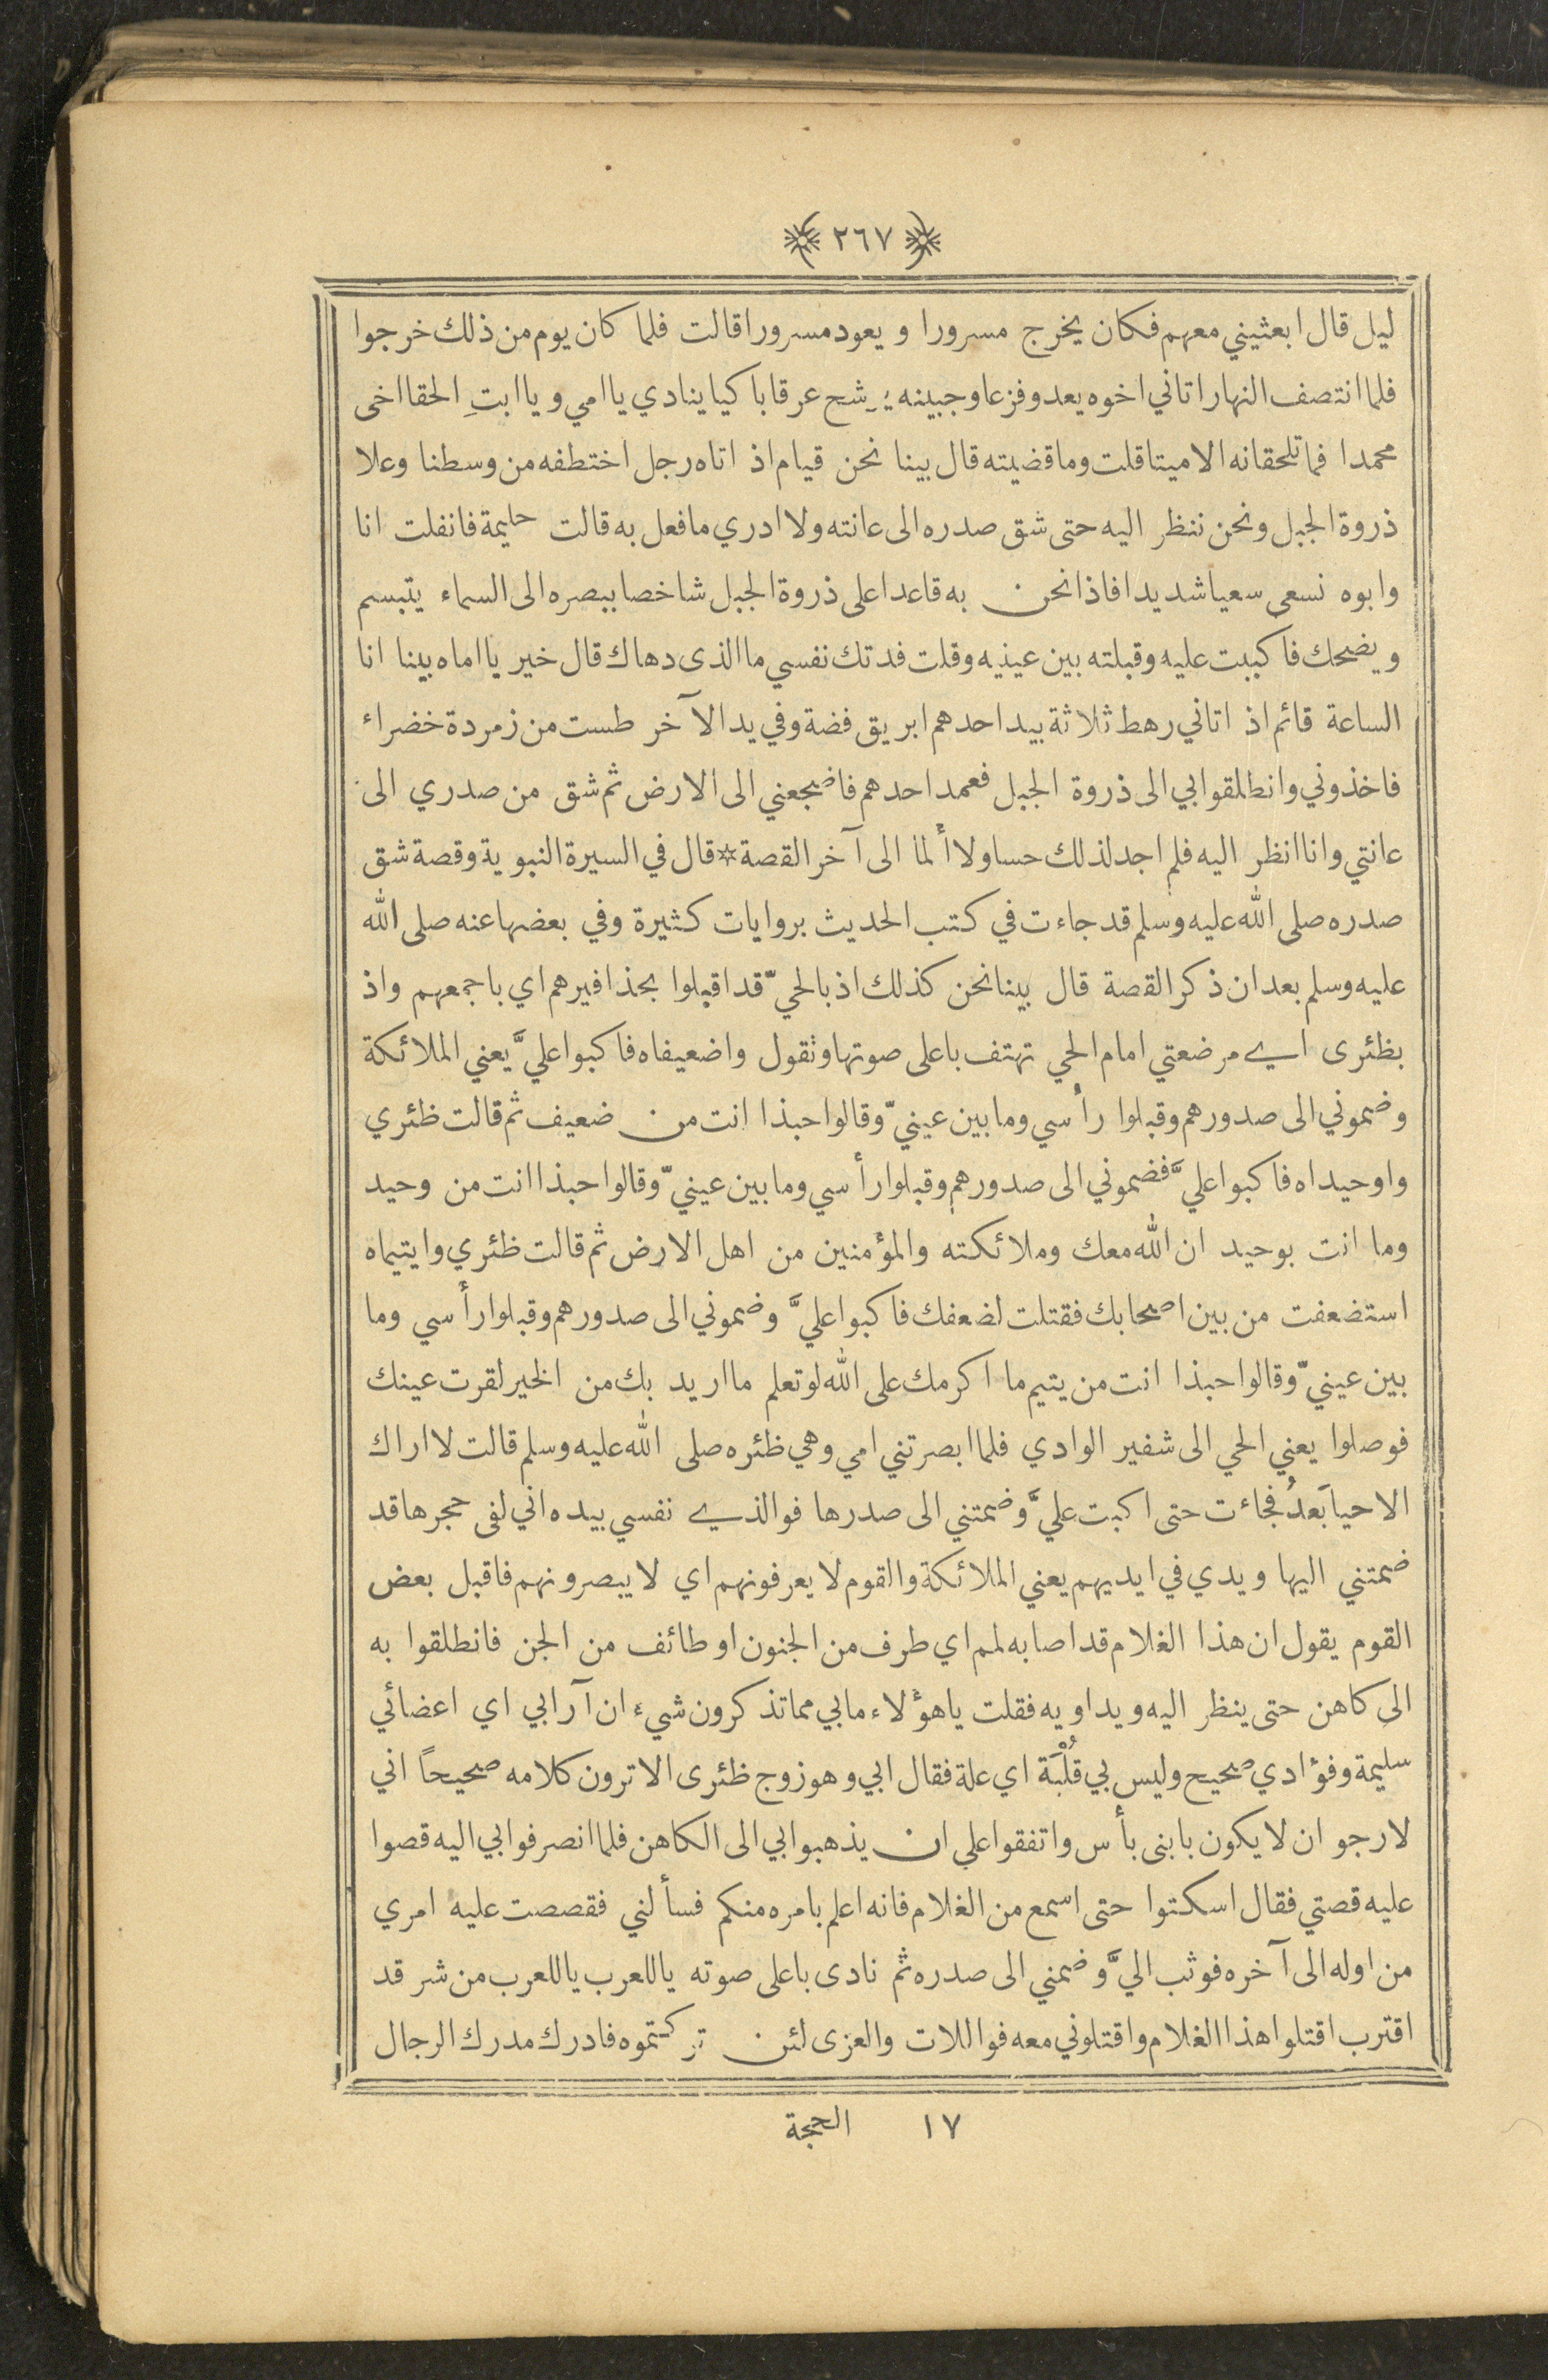 ٢٦٧
ليل قال ابعثيني معهم فكان يخرج مسرورا و يعود مسرورا قالت فلما كان يوم من ذلك خرجوا
فلما انتصف النهار اتاني اخوه يعدو فزعا وجبينه يرشح عرقا باكيا ينادي يا امي و يا ابتِ الحقا اخى
محمدا فما تلحقانه الا ميتا قلت وما قضيته قال بينا نحن قيام اذ اتاه رجل اختطفه من وسطنا وعلا
ذروة الجبل ونحن ننظر اليه حتى شق صدره الى عانته ولا ادري ما فعل به قالت حليمة فانفلت انا
وابوه نسعى سعيا شديدا فاذا نحن به قاعدا على ذروة الجبل شاخصا ببصره الى السماء يتبسم
ويضحك فاكببت عليه وقبلته بين عينيه وقلت فدتك نفسي ما الذى دهاك قال خير يا اماه بينا انا
الساعة قائم اذ اتاني رهط ثلاثة بيد احدهم ابريق فضة وفي يد الآخر طست من زمردة خضراء
فاخذوني وانطلقوا بي الى ذروة الجبل فعمد احدهم فاضجعني الى الارض ثم شق من صدري الى
عانتي وانا انظر اليه فلم اجد لذلك حسا ولا ألما الى آخر القصة * قال في السيرة النبوية وقصة شق
صدره صلى الله عليه وسلم قد جاءت في كتب الحديث بروايات كثيرة وفي بعضها عنه صلى الله
عليه وسلم بعد ان ذكر القصة قال بينا نحن كذلك اذ بالحيّ قد اقبلوا بحذافيرهم اي باجمعهم واذ
بظئرى اي مرضعتي امام الحي تهتف باعلى صوتها وتقول واضعيفاه فاكبوا عليَّ يعني الملائكة
وضموني الى صدورهم وقبلوا رأسي وما بين عينيّ وقالوا حبذا انت من ضعيف ثم قالت ظئري
واوحيداه فاكبوا عليَّ فضموني الى صدورهم وقبلوا رأسي وما بين عينيّ وقالوا حبذا انت من وحيد
وما انت بوحيد ان الله معك وملائكته والمؤمنين من اهل الارض ثم قالت ظئري وايتيماه
استضعفت من بين اصحابك فقتلت لضعفك فاكبوا عليَّ وضموني الى صدورهم وقبلوا رأسي وما
بين عينيّ وقالوا حبذا انت من يتيم ما اكرمك على الله لو تعلم ما اريد بك من الخير لقرت عينك
فوصلوا يعني الحي الى شفير الوادي فلما ابصرتني امي وهي ظئره صلى الله عليه وسلم قالت لا اراك
الا حيا بَعدُ فجاءت حتى اكبت عليَّ وضمتني الى صدرها فوالذي نفسي بيده اني لفى حجرها قد
ضمتني اليها ويدي في ايديهم يعني الملائكة والقوم لا يعرفونهم اي لا يبصرونهم فاقبل بعض
القوم يقول ان هذا الغلام قد اصابه لمم اي طرف من الجنون او طائف من الجن فانطلقوا به
الى كاهن حتى ينظر اليه ويداويه فقلت يا هؤلاء ما بي مما تذكرون شيء ان آرابي اي اعضائي
سليمة وفؤادي صحيح وليس بي قُلْبَة اي علة فقال ابي وهو زوج ظئرى الا ترون كلامه صحيحاً اني
لارجو ان لا يكون بابنى بأس واتفقوا على ان يذهبوا بي الى الكاهن فلما انصرفوا بي اليه قصوا
عليه قصتي فقال اسكتوا حتى اسمع من الغلام فانه اعلم بامره منكم فسألني فقصصت عليه امري
من اوله الى آخره فوثب اليَّ وضمني الى صدره ثم نادى باعلى صوته ياللعرب ياللعرب من شر قد
اقترب اقتلوا هذا الغلام واقتلوني معه فواللات والعزى لئن تركتموه فادرك مدرك الرجال
١٧ الحجة